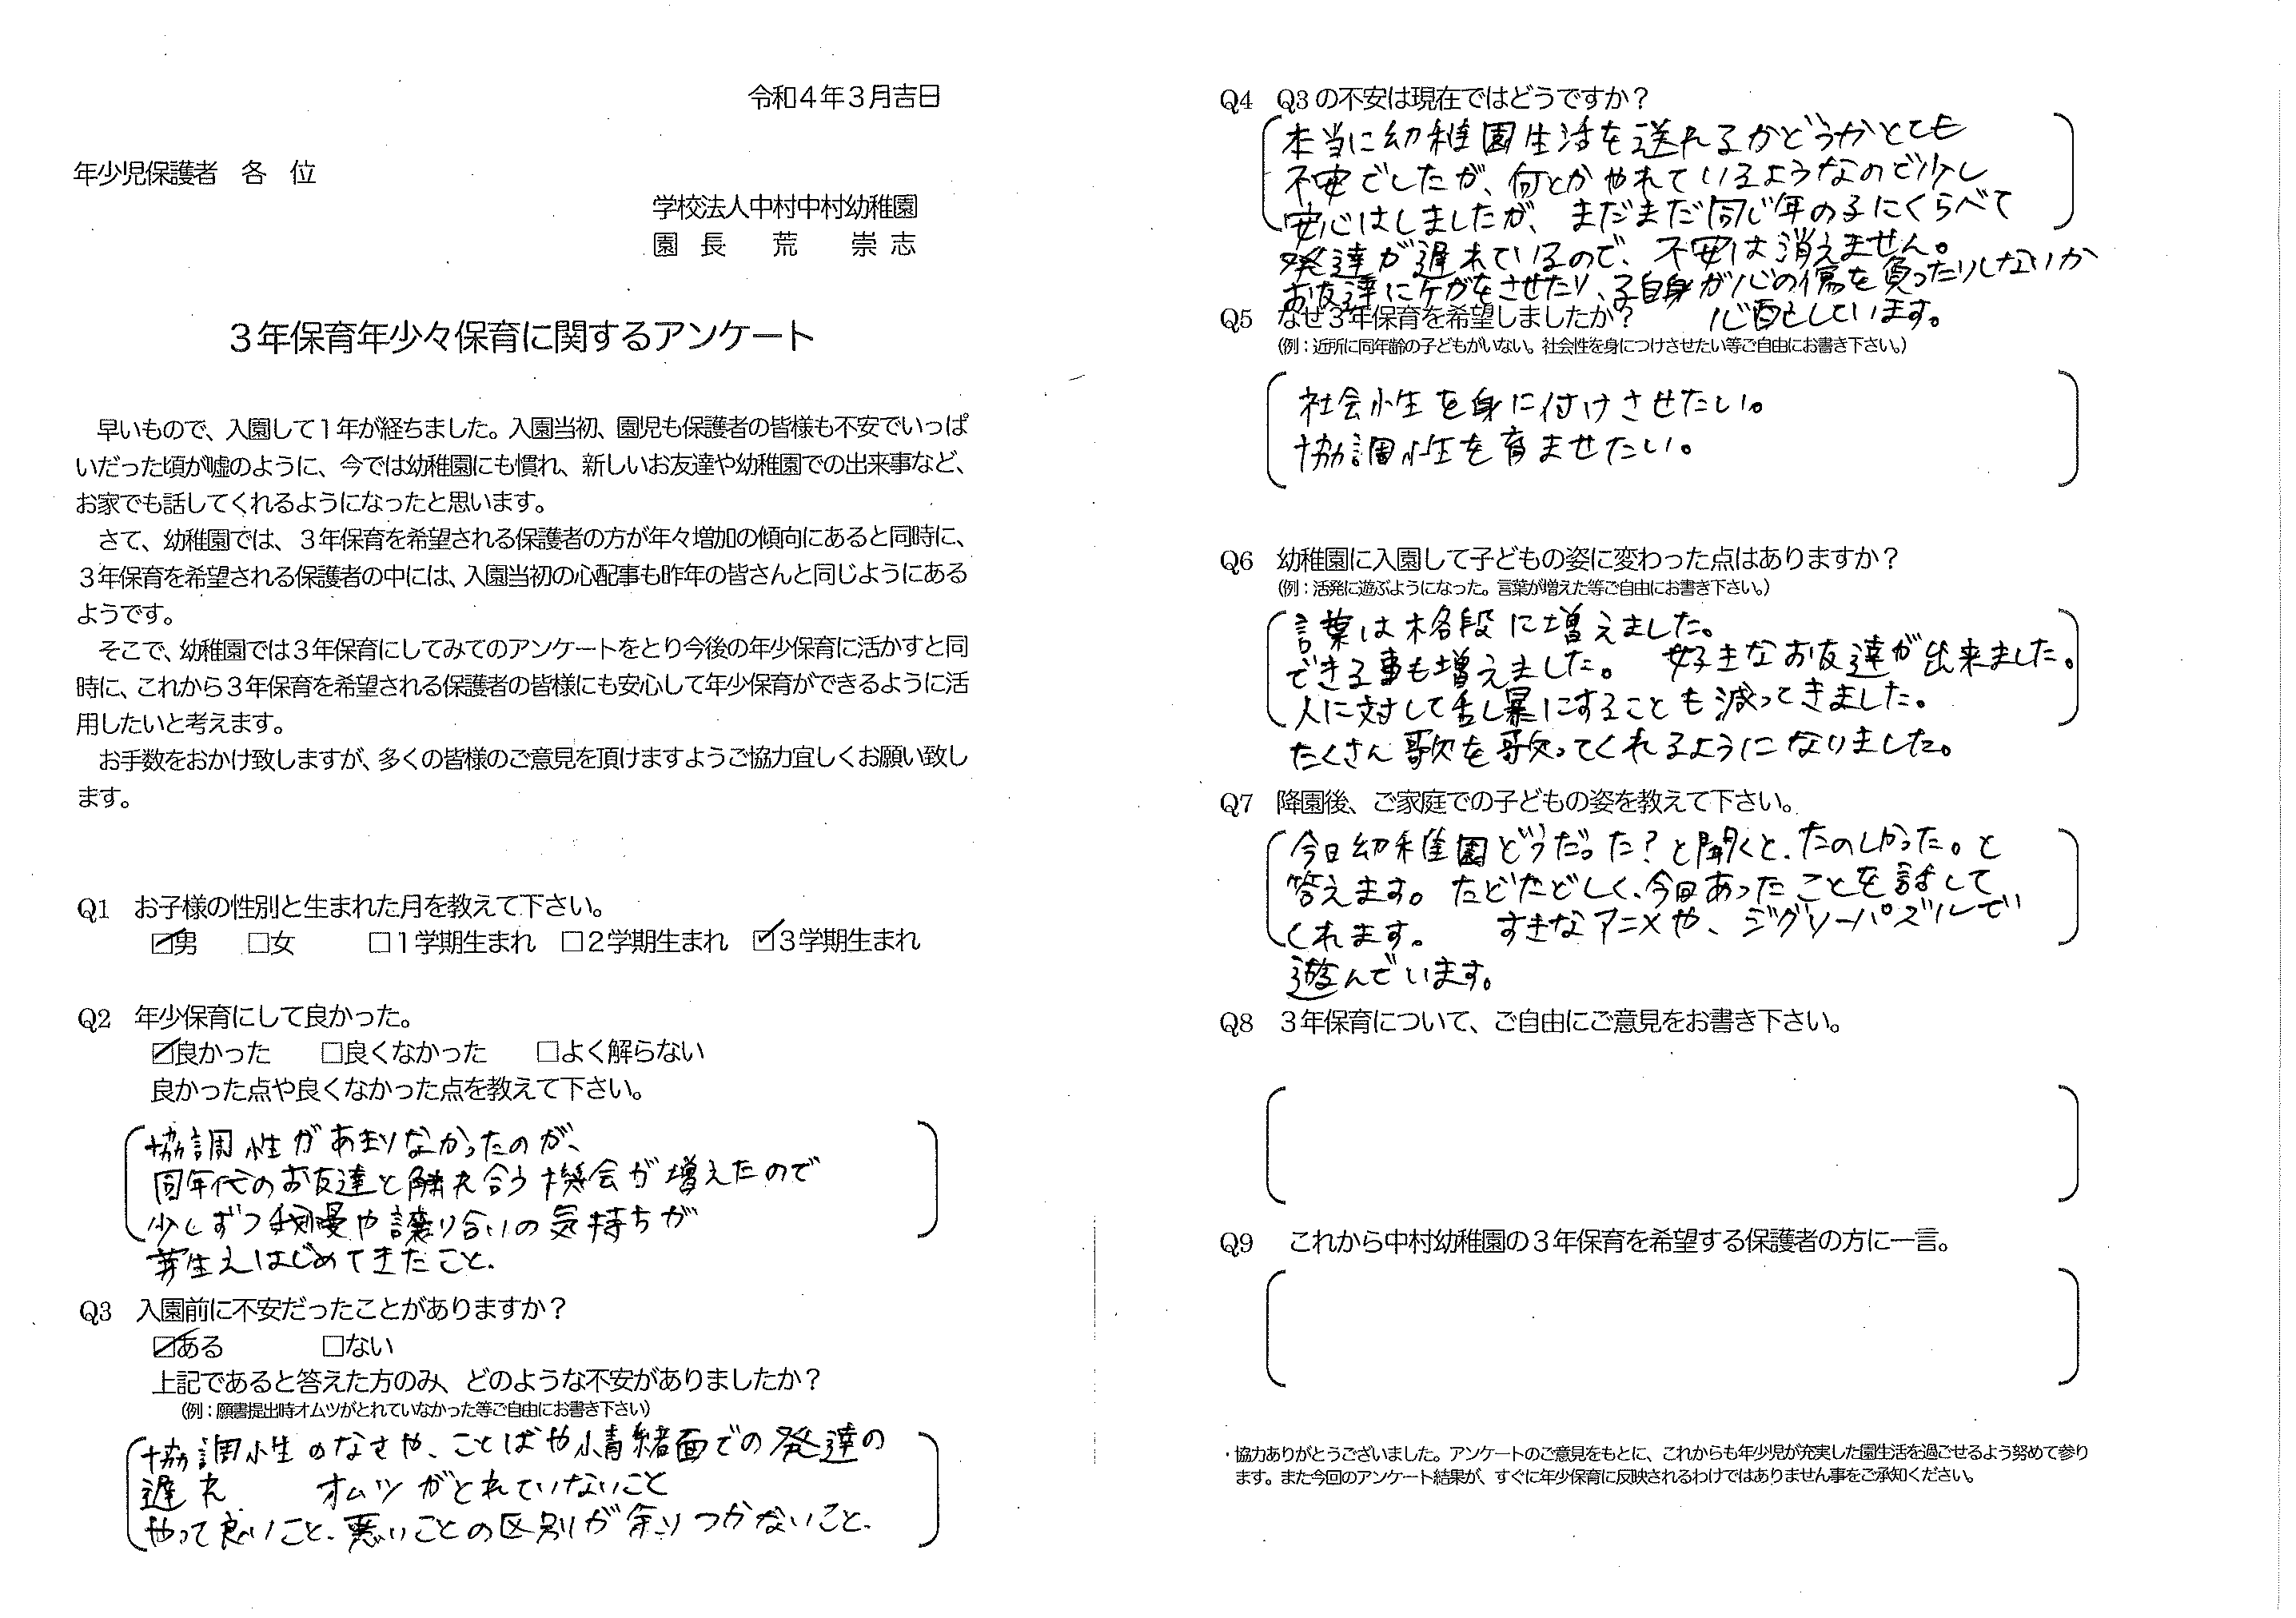 令和4年3月吉日
年少児保護者　各　位
学校法人中村中村幼稚園
園　長　　荒　　崇　志
３年保育年少々保育に関するアンケート
早いもので、入園して１年が経ちました。入園当初、園児も保護者の皆様も不安でいっぱ
いだった頃が嘘のように、今では幼稚園にも慣れ、新しいお友達や幼稚園での出来事など、
お家でも話してくれるようになったと思います。
さて、幼稚園では、３年保育を希望される保護者の方が年々増加の傾向にあると同時に、
３年保育を希望される保護者の中には、入園当初の心配事も昨年の皆さんと同じようにある
ようです。
そこで、幼稚園では３年保育にしてみてのアンケートをとり今後の年少保育に活かすと同
時に、これから３年保育を希望される保護者の皆様にも安心して年少保育ができるように活
用したいと考えます。
お手数をおかけ致しますが、多くの皆様のご意見を頂けますようご協力宜しくお願い致し
ます。
Q1　お子様の性別と生まれた月を教えて下さい。
☑男　□女　□１学期生まれ　□２学期生まれ　☑３学期生まれ
Q2　年少保育にして良かった。
☑良かった　□良くなかった　□よく解らない
良かった点や良くなかった点を教えて下さい。
協調性があまりなかったのが、
同年代のお友達と触れ合う機会が増えたので
少しずつ我慢や譲り合いの気持ちが
芽生えはじめてきたこと.
Q3　入園前に不安だったことがありますか？
☑ある　□ない
上記であると答えた方のみ、どのような不安がありましたか？
（例：願書提出時オムツがとれていなかった等ご自由にお書き下さい）
協調性のなさや、ことばや情緒面での発達の
遅れ　オムツがとれていないこと
やって良いこと、悪いことの区別が余りつかないこと.
Q4　Q3の不安は現在ではどうですか？
本当に幼稚園生活を送れるかどうかとても
不安でしたが、何とかやれているようなので少し
安心はしましたが、まだまだ同じ年の子にくらべて
発達が遅れているので、不安は消えません。
お友達にケガをさせたり、子自身が心の傷を負ったりしないか
心配しています。
Q5　なぜ３年保育を希望しましたか？
（例：近所に同年齢の子どもがいない。社会性を身につけさせたい等ご自由にお書き下さい。）
社会性を身に付けさせたい。
協調性を育ませたい。
Q6　幼稚園に入園して子どもの姿に変わった点はありますか？
（例：活発に遊ぶようになった。言葉が増えた等ご自由にお書き下さい。）
言葉は格段に増えました。
できる事も増えました。　好きなお友達が出来ました。
人に対して乱暴にすることも減ってきました。
たくさん歌を歌ってくれるようになりました。
Q7　降園後、ご家庭での子どもの姿を教えて下さい。
今日幼稚園どうだった？と聞くと、たのしかった。と
答えます。たどたどしく、今日あったことを話して
くれます。　すきなアニメや、ジグソーパズルで
遊んでいます。
Q8　３年保育について、ご自由にご意見をお書き下さい。
Q9　これから中村幼稚園の３年保育を希望する保護者の方に一言。
・協力ありがとうございました。アンケートのご意見をもとに、これからも年少児が充実した園生活を過ごせるよう努めて参り
ます。また今回のアンケート結果が、すぐに年少保育に反映されるわけではありません事をご承知ください。